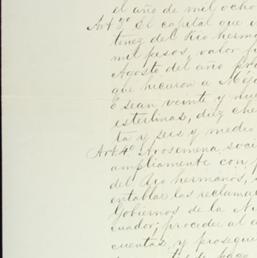 el año de mil ocho
Art 3º El capital que
tenez del Rio herma
mil pesos, valor
Agosto del año pro
que hicieron a Méj
ó sean veinte y nue
esterlinas, diez che
ta y seis y medio
Art 4º Arosemena soci
ampliamente con
del Rio hermanos,
entablar las reclama
Gobiernos de la N
cuador; proceder al a
cuentas, y prosegui